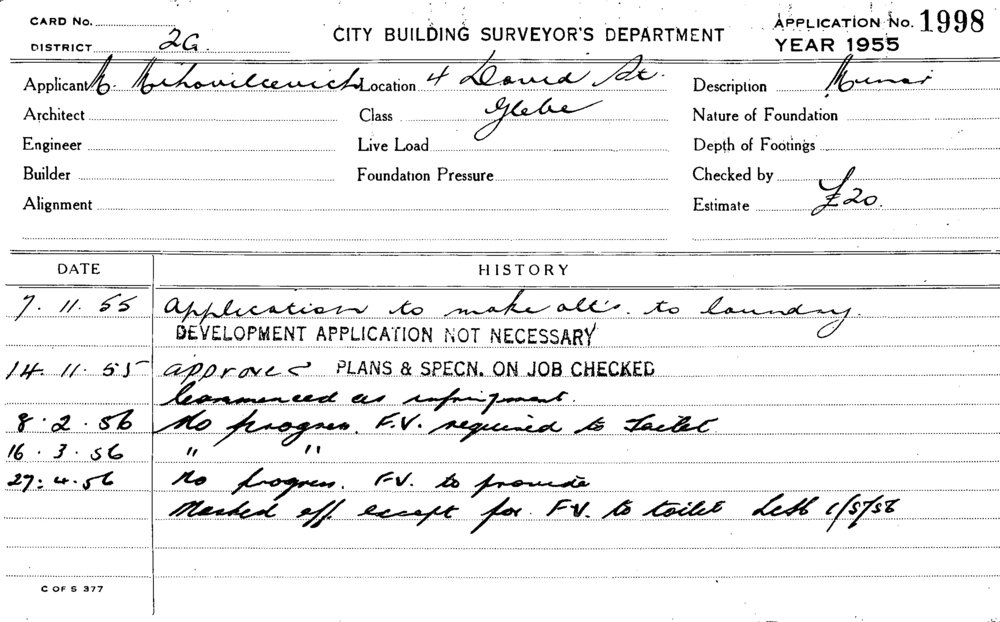 CARD No.
DISTRICT 2G.
CITY BUILDING SURVEYOR'S DEPARTMENT
APPLICATION No. 1998
YEAR 1955
Applicant M. Mihovilcevich Location 4 David St. Description Minor
Architect Class Glebe Nature of Foundation
Engineer Live Load Depth of Footings
Builder Foundation Pressure Checked by
Alignment Estimate £20.
DATE HISTORY
7. 11. 55 Application to make alt's. to laundry.
DEVELOPMENT APPLICATION NOT NECESSARY
14. 11. 55 approved PLANS & SPECN. ON JOB CHECKED
Commenced as infringment.
8. 2. 56 No progress. F.V. required to Toilet
16. 3. 56 " "
27. 4. 56 No progress. F.V. to provide
Marked off except for F.V. to toilet 1/5/56
C OF S 377